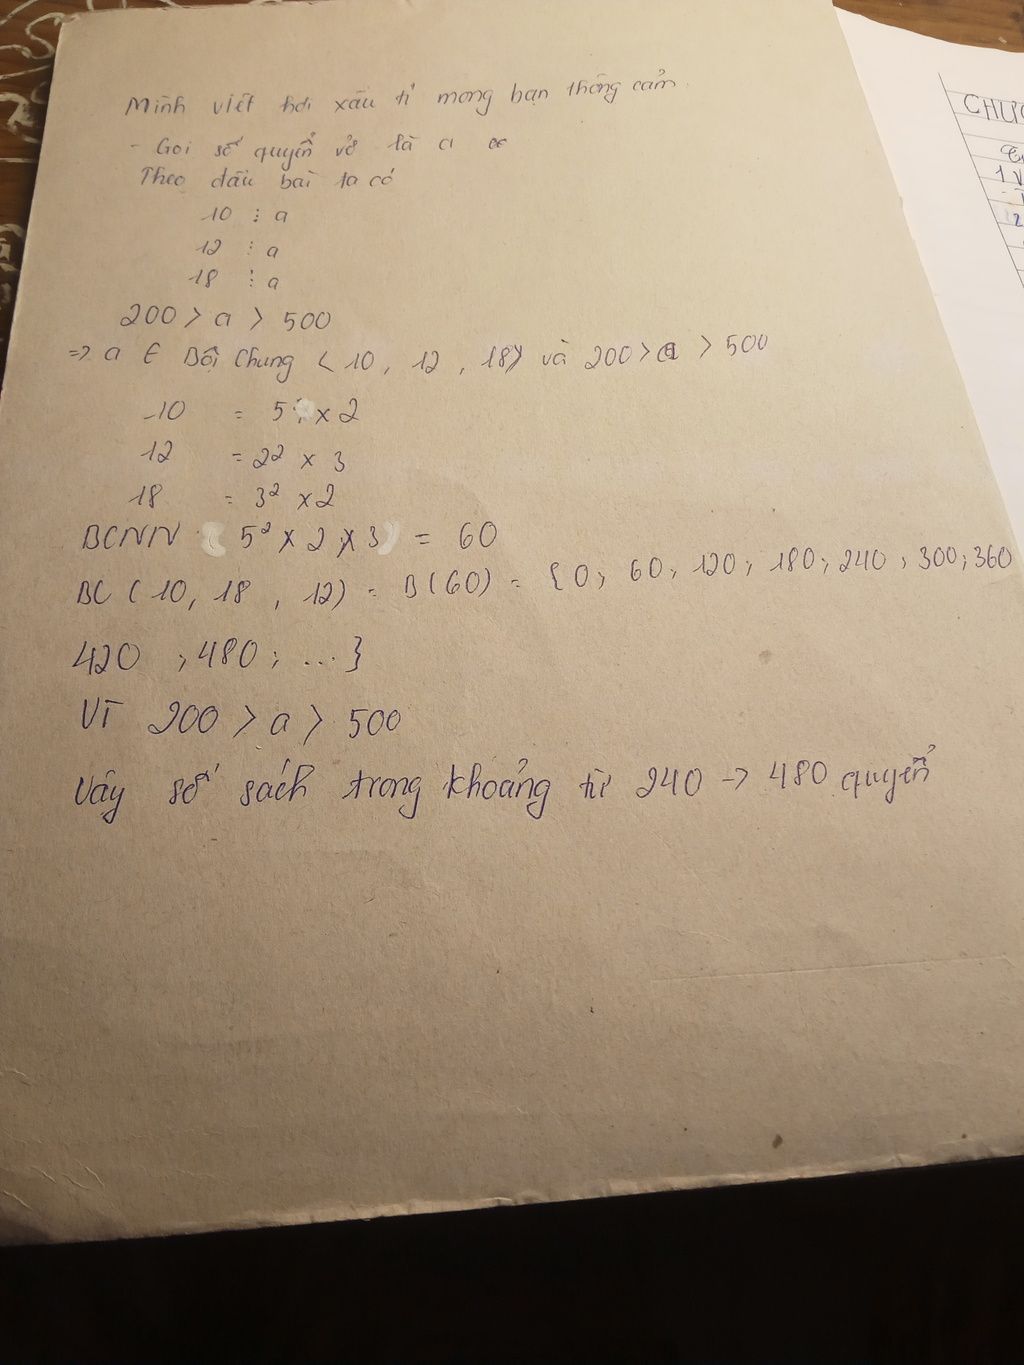 Mình viết hơi xấu tí mong bạn thông cảm.
- Gọi số quyển vở là a
Theo đầu bài ta có
10 ⋮ a
12 ⋮ a
18 ⋮ a
200 > a > 500
=> a ∈ Bội Chung (10, 12, 18) và 200 > a > 500
10 = 5 x 2
12 = 2² x 3
18 = 3² x 2
BCNN (5² x 2 x 3) = 60
BC (10, 18, 12) = B(60) = {0; 60; 120; 180; 240; 300; 360
420 ; 480; ...}
Vì 200 > a > 500
Vậy số sách trong khoảng từ 240 -> 480 quyển
CHƯƠ
1 V